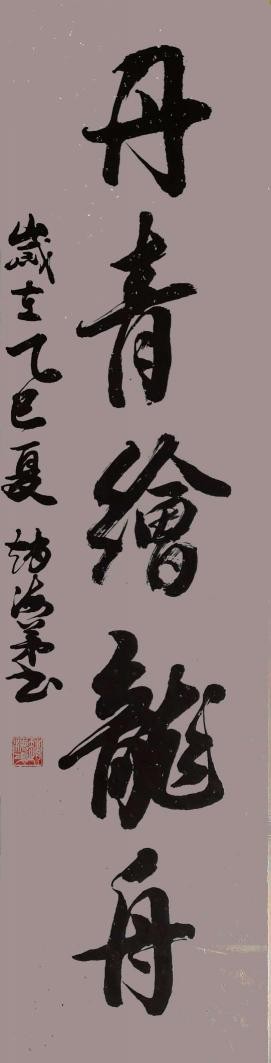 丹青繪龍舟
歲在乙巳夏 海 書